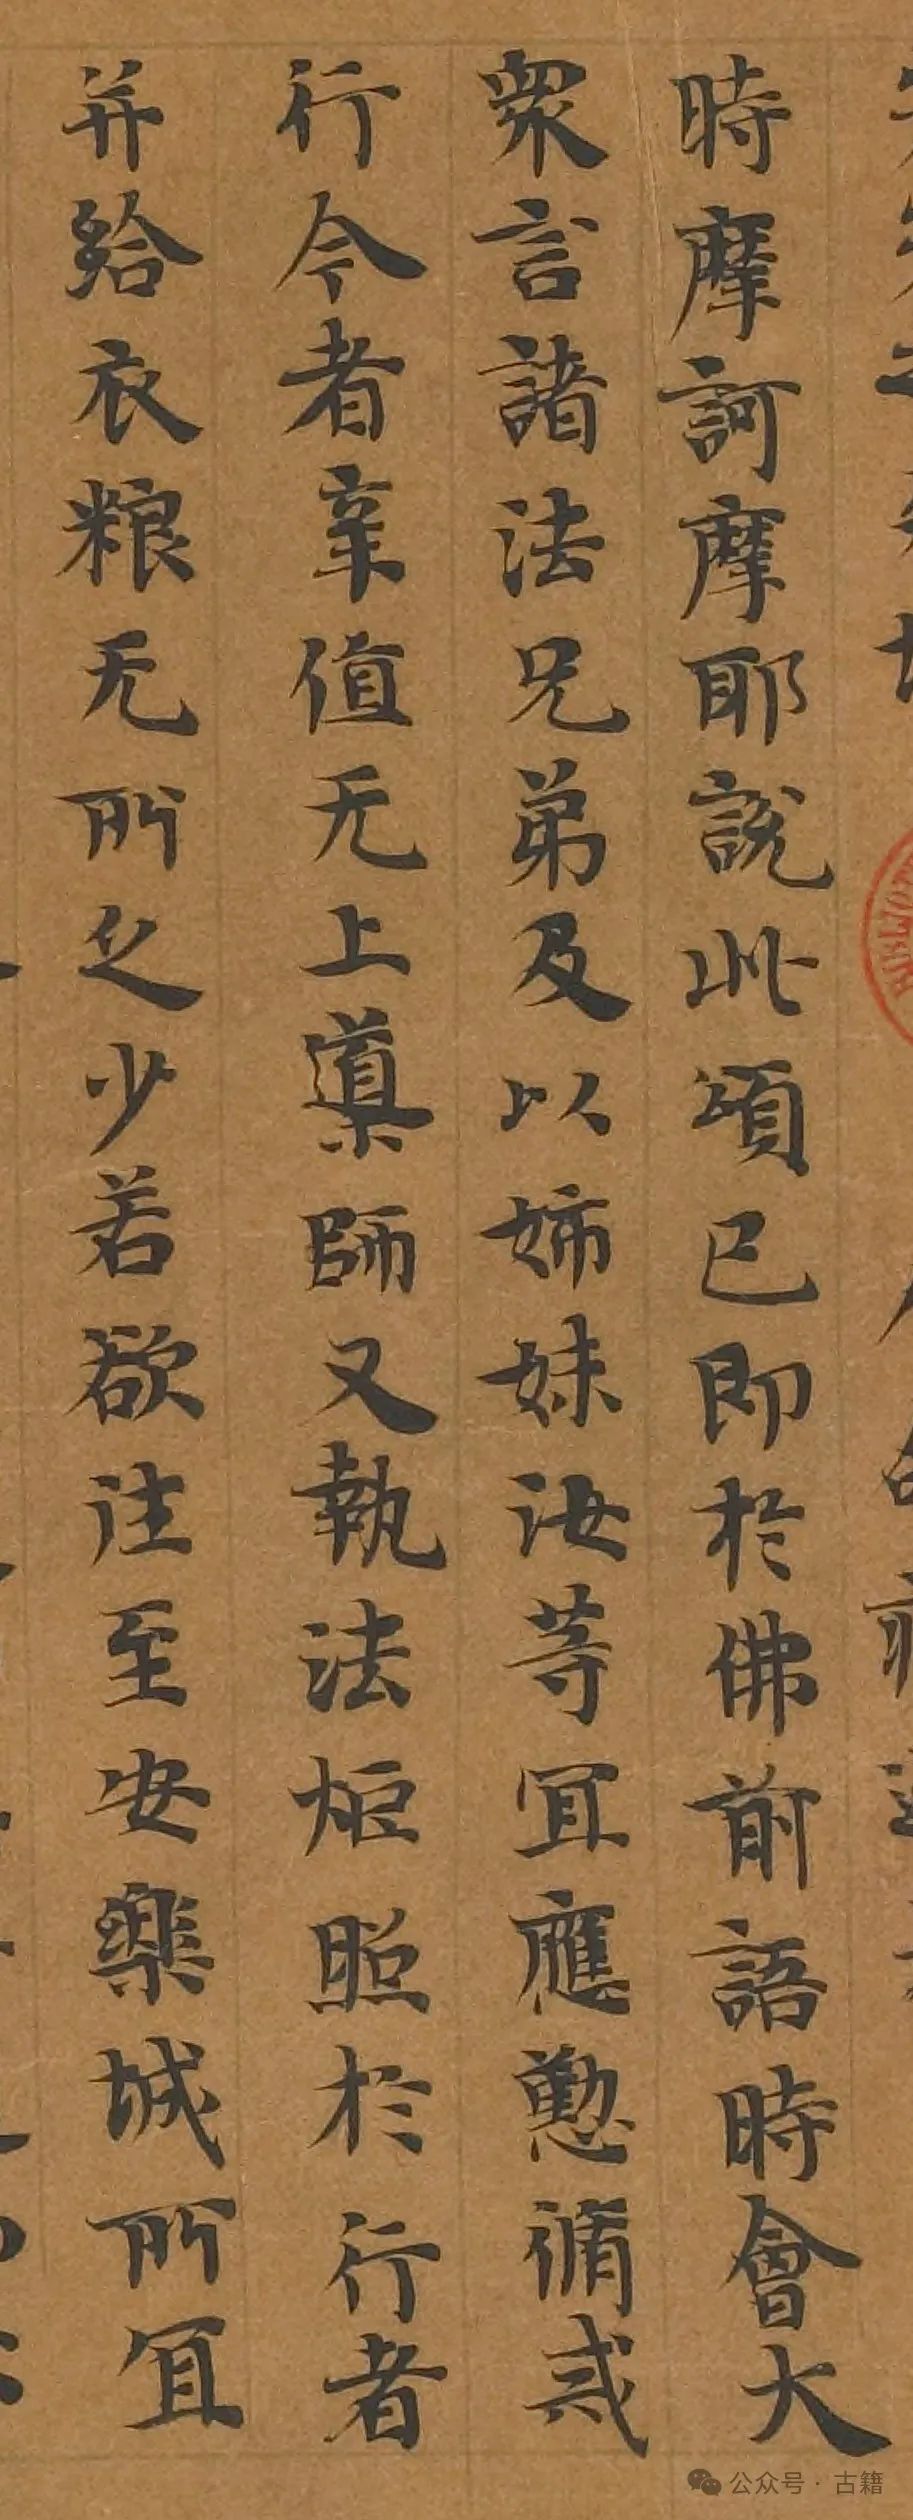 時摩訶摩耶說此頌已即於佛前語時會大
衆言諸法兄弟及以姉妹汝等宜應懃脩戒
行今者幸值无上導師又執法炬照於行者
并給衣粮无所乏少若欲往至安樂城所宜
公众号·古籍